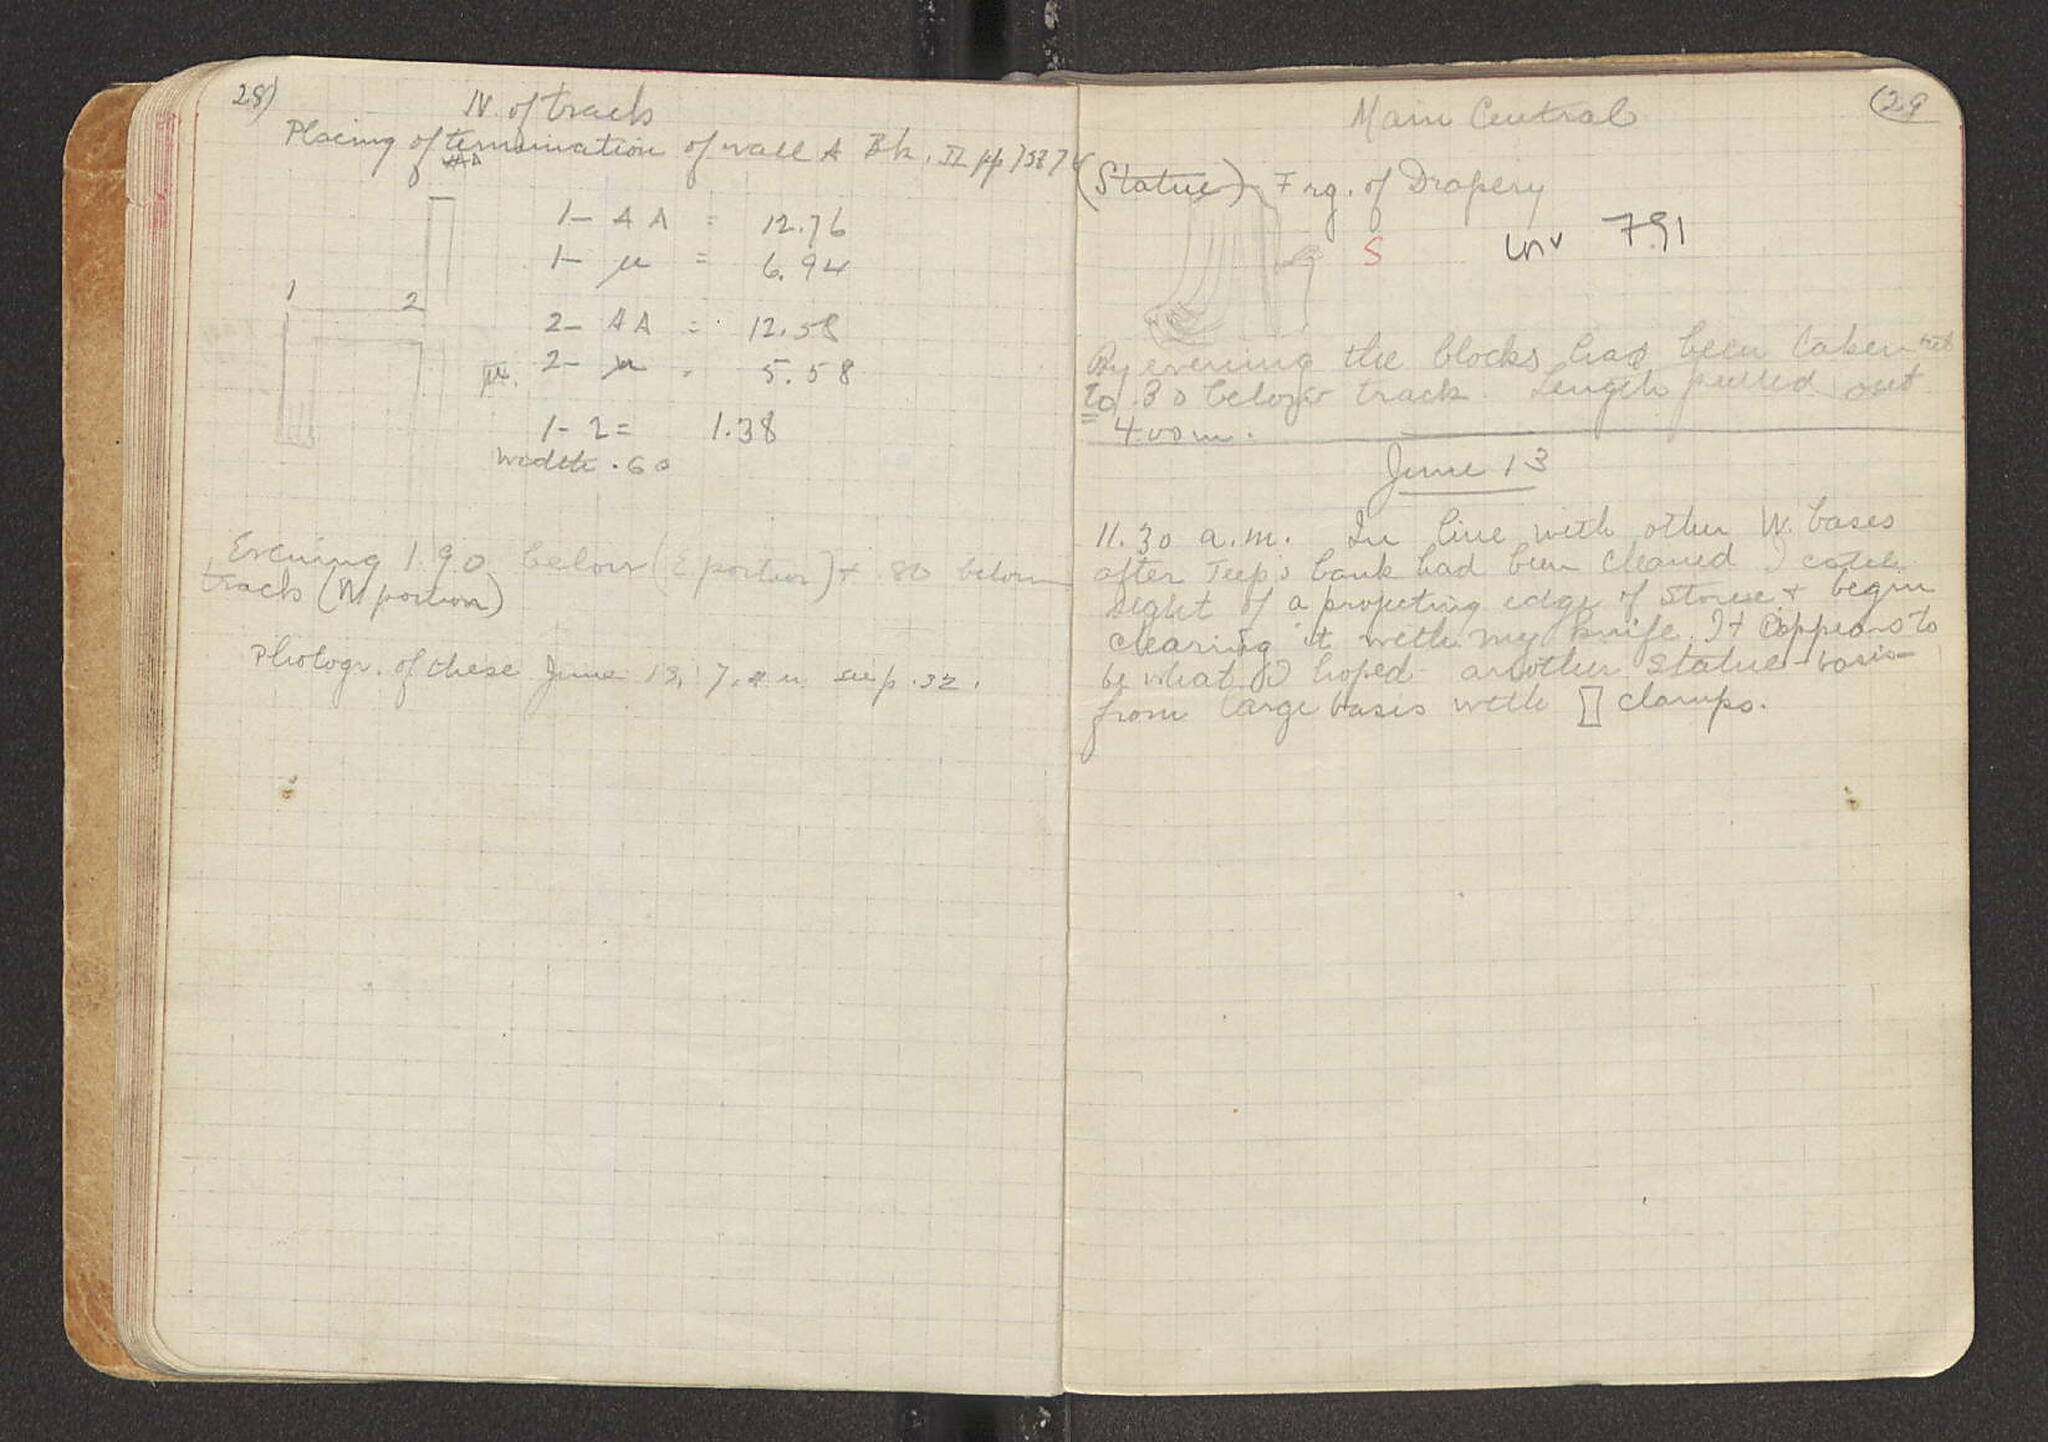 28)
N. of track
Placing of termination of wall A Bk. II pp
1- AA = 12.76
1- μ = 6.94
1 2
2- AA = 12.58
2- μ = 5.58
1-2 = 1.38
Width .60
Evening 1.90 below (E portion) + .80 below
track (W portion)
Photogr. of these June 13, 7, see p. 32.
(29
Main Central
(Statue) Frg. of Drapery
S Inv 791
By evening the blocks has been taken out
to .30 below track. Length pulled out
4.00 m.
June 13
11.30 a.m. In line with other W. bases
after Teep's bank had been cleaned I catch
sight of a projecting edge of stone + begin
clearing it with my knife. It appears to
be what I hoped another statue-basis
from large basis with clamps.